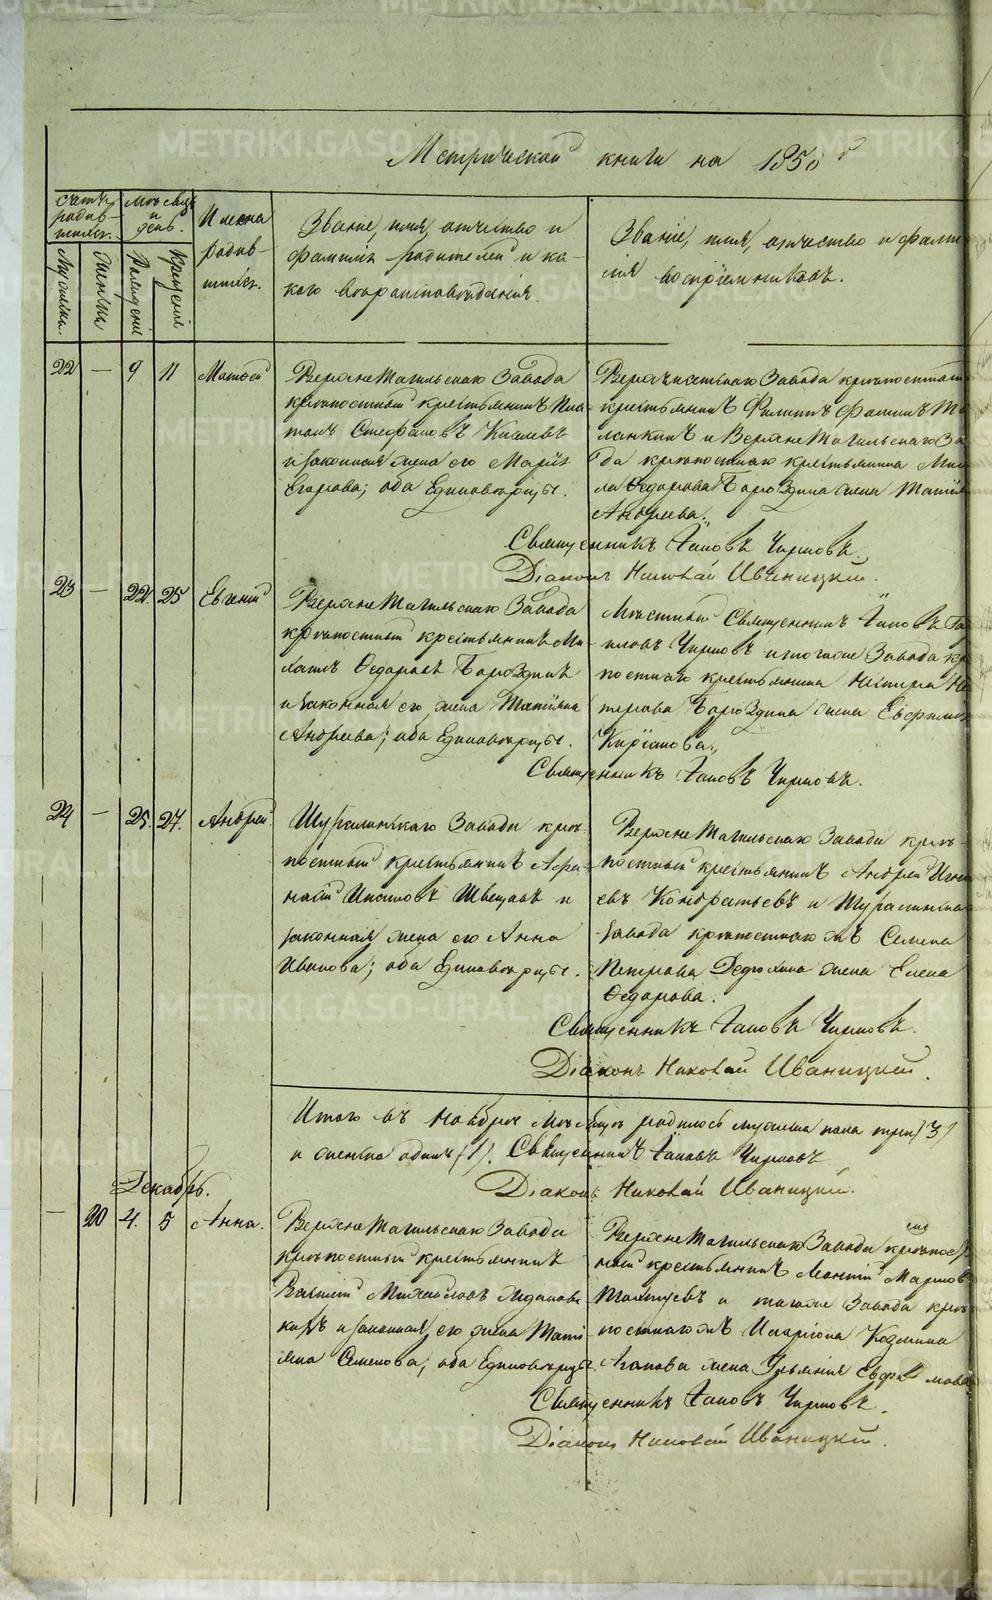 Метрической книги на 1850 г
Счетъ родив-шихся.
Мужска.
Женска
Мѣсяцъ и день.
Рожденіе
Крещеніе
Имена родив-шихся.
Званіе, имя, отчество и
фамилія родителей и ка-
кого вѣроисповѣданія.
Званіе, имя, отчество и фами-
лія воспріемниковъ.
22 — 9 11 Матвей
ВерхнеТагильскаго Завода
крѣпостный крестьянинъ
Стефановъ Киселевъ
и законная жена его Марія
Егорова; оба Единовѣрцы.
завода крѣпостный
крестьянинъ Филиппъ Фоминъ
и ВерхнеТагильскаго За
да крѣпостнаго крестьянина Миха
ла Ѳедорова Бороздина жена Татія
Андреева.
Священникъ Іаковъ Чирковъ.
Діаконъ Николай Иваницкій.
23 — 22 25 Евгеній
ВерхнеТагильскаго Завода
крѣпостный крестьянинъ Ми-
хаилъ Ѳедоровъ Бороздинъ
и законная его жена Татіяна
Андреева; оба Единовѣрцы.
Мѣстный Священникъ Іаковъ
Чирковъ и того же Завода кр
постнаго крестьянина Нестера Не
терова Бороздина жена
Кирганова.
Священникъ Іаковъ Чирковъ.
24 — 25. 27. Андрей
Шуралинскаго Завода крѣ-
постный крестьянинъ Афа-
насій Швецовъ и
законная жена его Анна
Иванова; оба Единовѣрцы.
ВерхнеТагильскаго Завода крѣ-
постный крестьянинъ Андрей Игна
евъ Кондратьевъ и Шуралинска
завода крѣпостнаго жъ Семена
Петрова Дедюхина жена Елена
Ѳедорова.
Священникъ Іаковъ Чирковъ.
Діаконъ Николай Иваницкій.
Итого въ Ноябрѣ Мѣсяцѣ родилось мужеска пола три (3)
и женска одинъ (1). Священникъ Іаковъ Чирковъ
Діаконъ Николай Иваницкій.
Декабрь.
— 20 4. 5 Анна.
ВерхнеТагильскаго Завода
крѣпостный крестьянинъ
Василій Михайловъ
и законная его жена Тати
яна Семенова; оба Единовѣрцы.
ВерхнеТагильскаго Завода крѣпост
ный крестьянинъ Леонтій Марков
и того же Завода крѣ-
постнаго жъ Иларіона Козмина
Агапова жена Ульянія Ефимова
Священникъ Іаковъ Чирковъ.
Діаконъ Николай Иваницкій.
METRIKI.GASO-URAL.RU